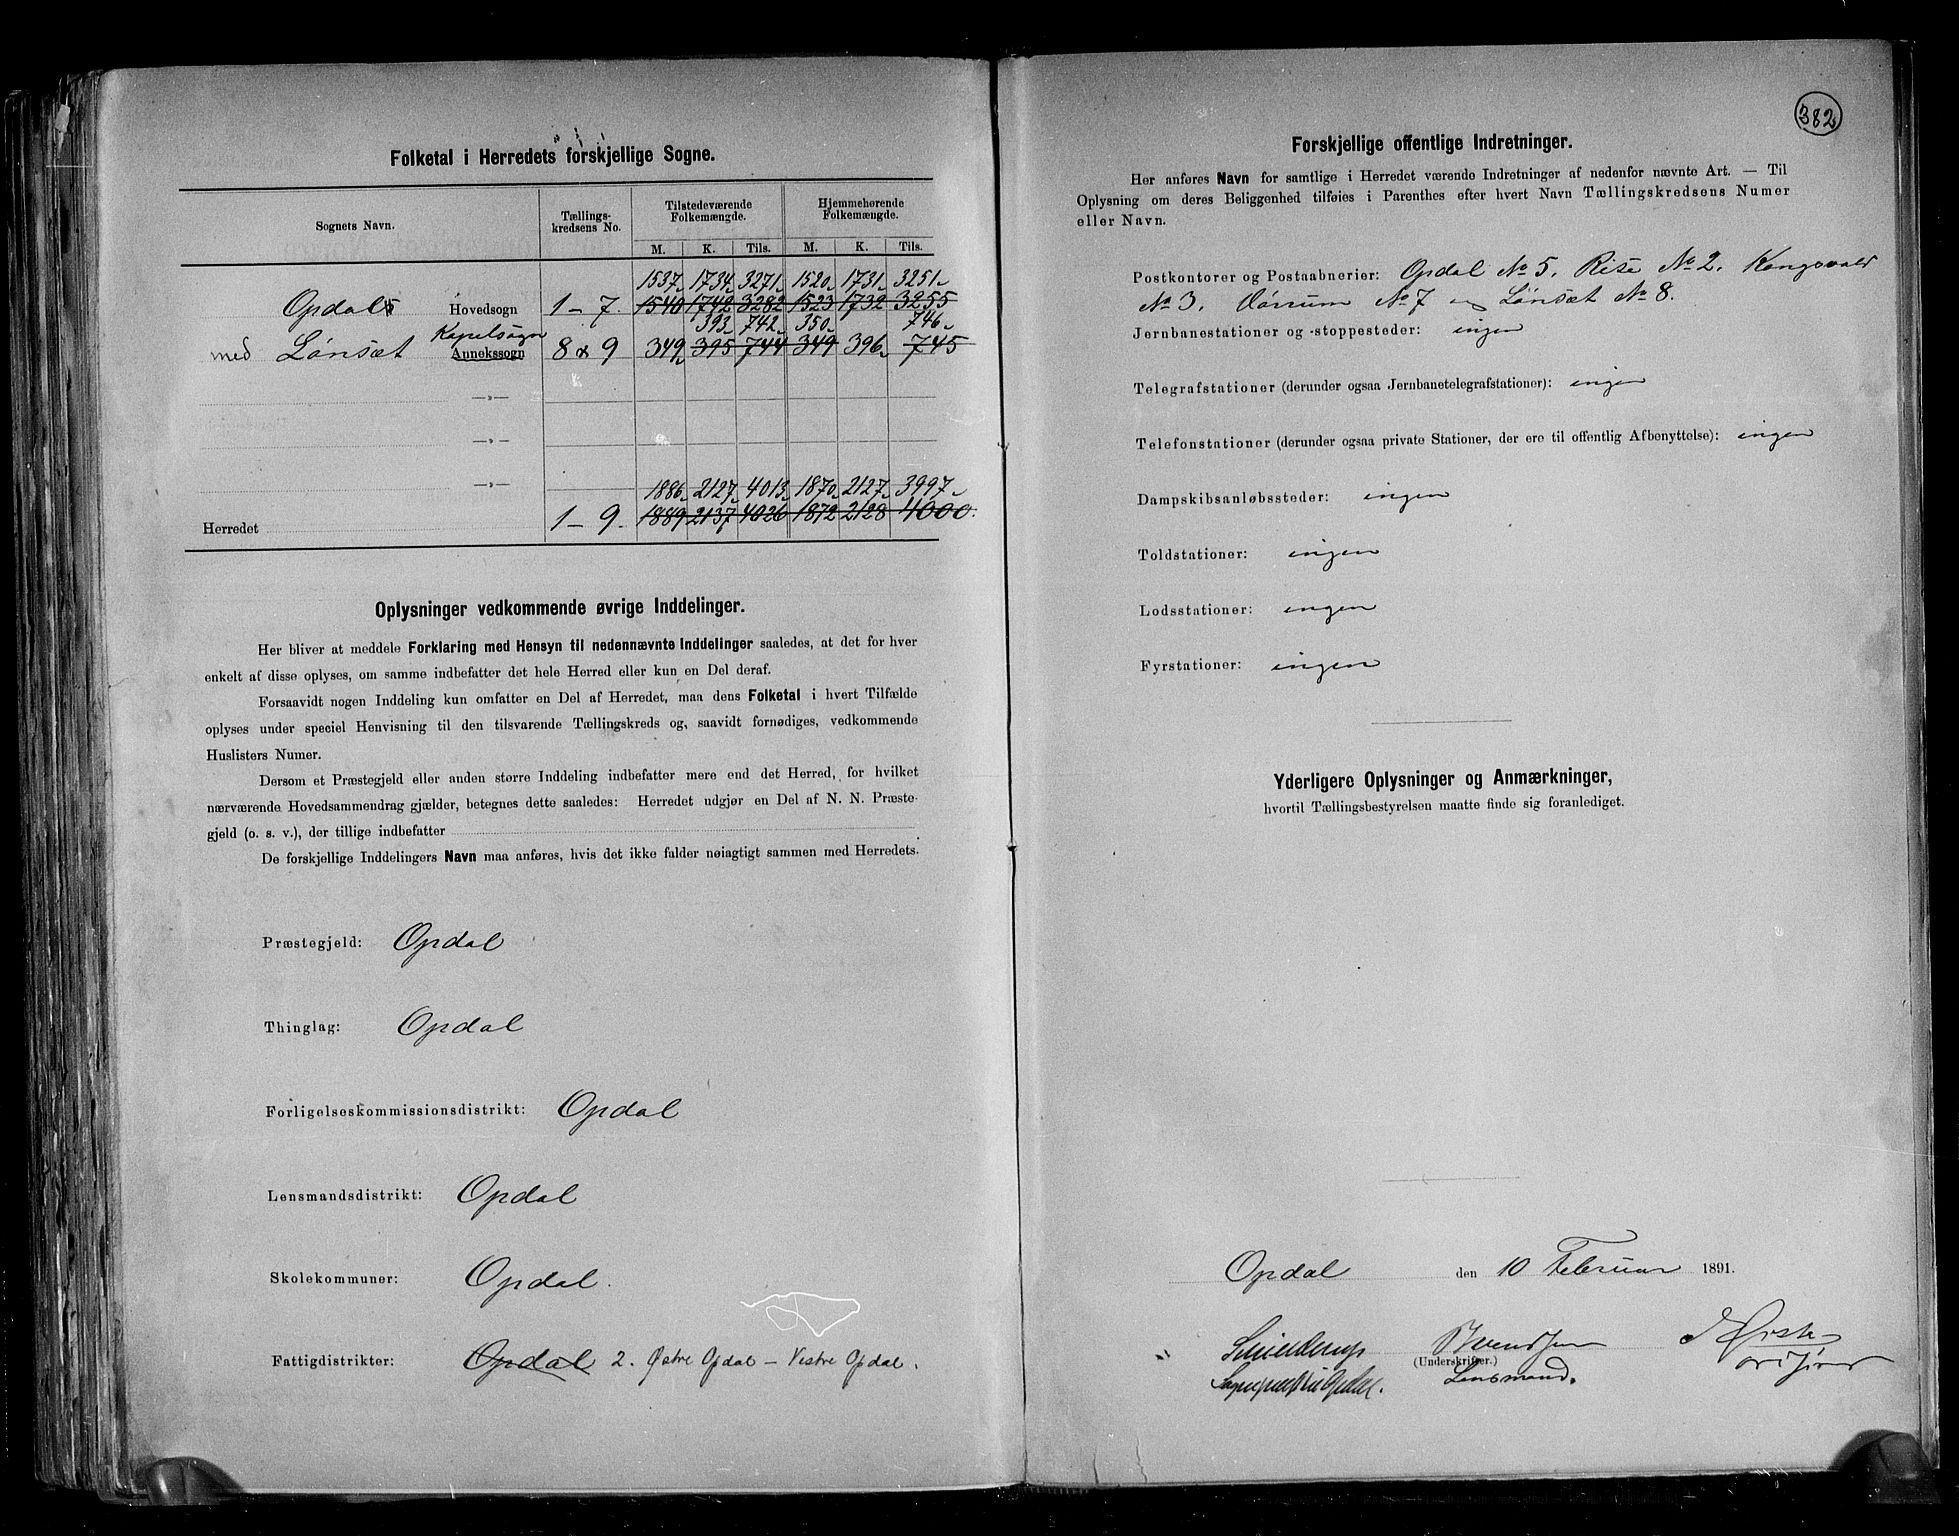 Folketal i Herredets forskjellige Sogne.
Sognets Navn.
Tællings-
kredsens No.
Tilstedeværende
Folkemængde.
Hjemmehørende
Folkemængde.
M. K. Tils. M. K. Tils.
1537 1734 3271 1520 1731 3251
Opdal Hovedsogn 1-7. 1540 1742 3282 1523 1732 3255
393 742 350 746
Kapelsogn
med Lønset Annekssogn 8 & 9 349 395 744 349 396 745
—„—
—„—
—„—
1886 2127 4013 1870 2127 3997
Herredet 1-9. 1889 2137 4026 1872 2128 4000.
Oplysninger vedkommende øvrige Inddelinger.
Her bliver at meddele Forklaring med Hensyn til nedennævnte Inddelinger saaledes, at det for hver
enkelt af disse oplyses, om samme indbefatter det hele Herred eller kun en Del deraf.
Forsaavidt nogen Inddeling kun omfatter en Del af Herredet, maa dens Folketal i hvert Tilfælde
oplyses under speciel Henvisning til den tilsvarende Tællingskreds og, saavidt fornødiges, vedkommende
Huslisters Numer.
Dersom et Præstegjeld eller anden større Inddeling indbefatter mere end det Herred, for hvilket
nærværende Hovedsammendrag gjælder, betegnes dette saaledes: Herredet udgjør en Del af N. N. Præste-
gjeld (o. s. v.), der tillige indbefatter
De forskjellige Inddelingers Navn maa anføres, hvis det ikke falder nøiagtigt sammen med Herredets.
Præstegjeld: Opdal
Thinglag: Opdal
Forligelseskommissionsdistrikt: Opdal
Lensmandsdistrikt: Opdal
Skolekommuner: Opdal.
Fattigdistrikter: Opdal 2. Østre Opdal – Vestre Opdal.
382
Forskjellige offentlige Indretninger.
Her anføres Navn for samtlige i Herredet værende Indretninger af nedenfor nævnte Art. — Til
Oplysning om deres Beliggenhed tilføies i Parenthes efter hvert Navn Tællingskredsens Numer
eller Navn.
Postkontorer og Postaabnerier: Opdal No 5. Rise No 2. Kongsvold
No 3. Vorrum No 7 og Lønset No 8.
Jernbanestationer og -stoppesteder: ingen
Telegrafstationer (derunder ogsaa Jernbanetelegrafstationer): ingen
Telefonstationer (derunder ogsaa private Stationer, der ere til offentlig Afbenyttelse): ingen
Dampskibsanløbssteder: ingen
Toldstationer: ingen
Lodsstationer: ingen
Fyrstationer: ingen
Yderligere Oplysninger og Anmærkninger,
hvortil Tællingsbestyrelsen maatte finde sig foranlediget.
Opdal den 10 Februar 1891.
(Underskrifter.)
Lensmand.